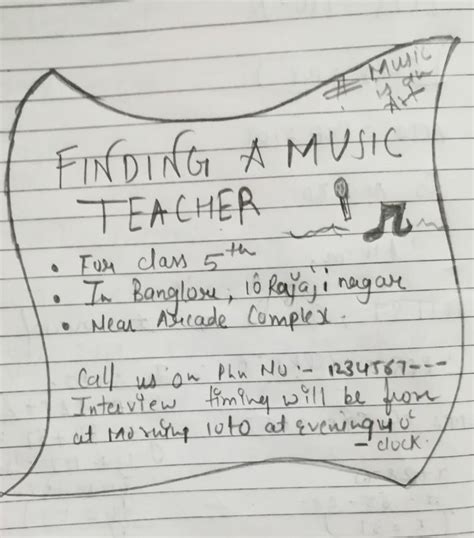 # MUSIC
is an
Art
FINDING A MUSIC
TEACHER
• For class 5th
• In Banglore, 10 Rajaji nagar
• Near Arcade Complex.
Call us on Phn No:- 1234567---
Interview timing will be from
at Morning 10 to at evening 4 o'
clock.